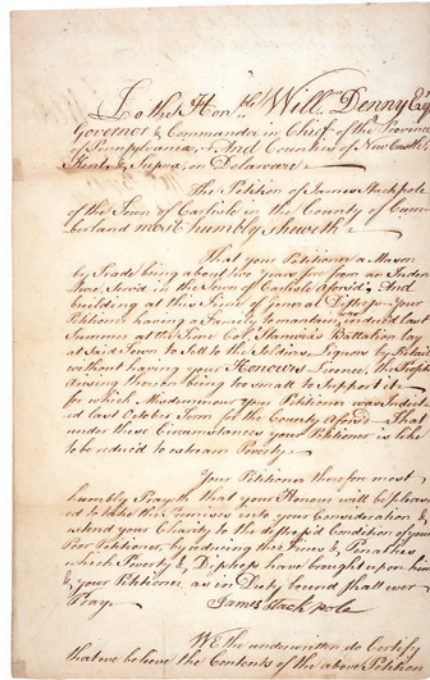 To the Hon.ble Will.m Denny Esq
Governor & Commander in Chief of the Province
of Pennsylvania, And Counties of New Castle,
Kent & Sussex, on Delaware
The Petition of James Stackpole
of the Town of Carlisle in the County of Cum-
berland most humbly sheweth
That your Petitioner a Mason
by Trade being about two Years free from an Inden
ture, Serv'd in the Town of Carlisle aforsd. And
building at this Time of General Distress Your
Petitioner having a Family to mantain, was induc'd last
Summer at the Time Col. Stanwix's Battalion lay
at said Town to Sell to the Soldiers, Liquors by Retail
without having your Honours Licence, the Profits
arising thereon being too small to Support it
for which Misdeminour your Petitioner was Indict-
ed last October Term for the County aforsd. That
under these Circumstances your Petitioner is like
to be reduc'd to extream Poverty
Your Petitioner therefore most
humbly Prayeth that your Honour will be pleas-
ed to take the Premises into your Consideration &
extend your Charity to the distress'd Condition of your
Poor Petitioner, by reducing the Fines & Penalties
which Poverty & Distress have brought upon him
& your Petitioner as in Duty bound shall ever
Pray
James Stackpole
WE the underwritten do Certify
that we believe the Contents of the above Petition